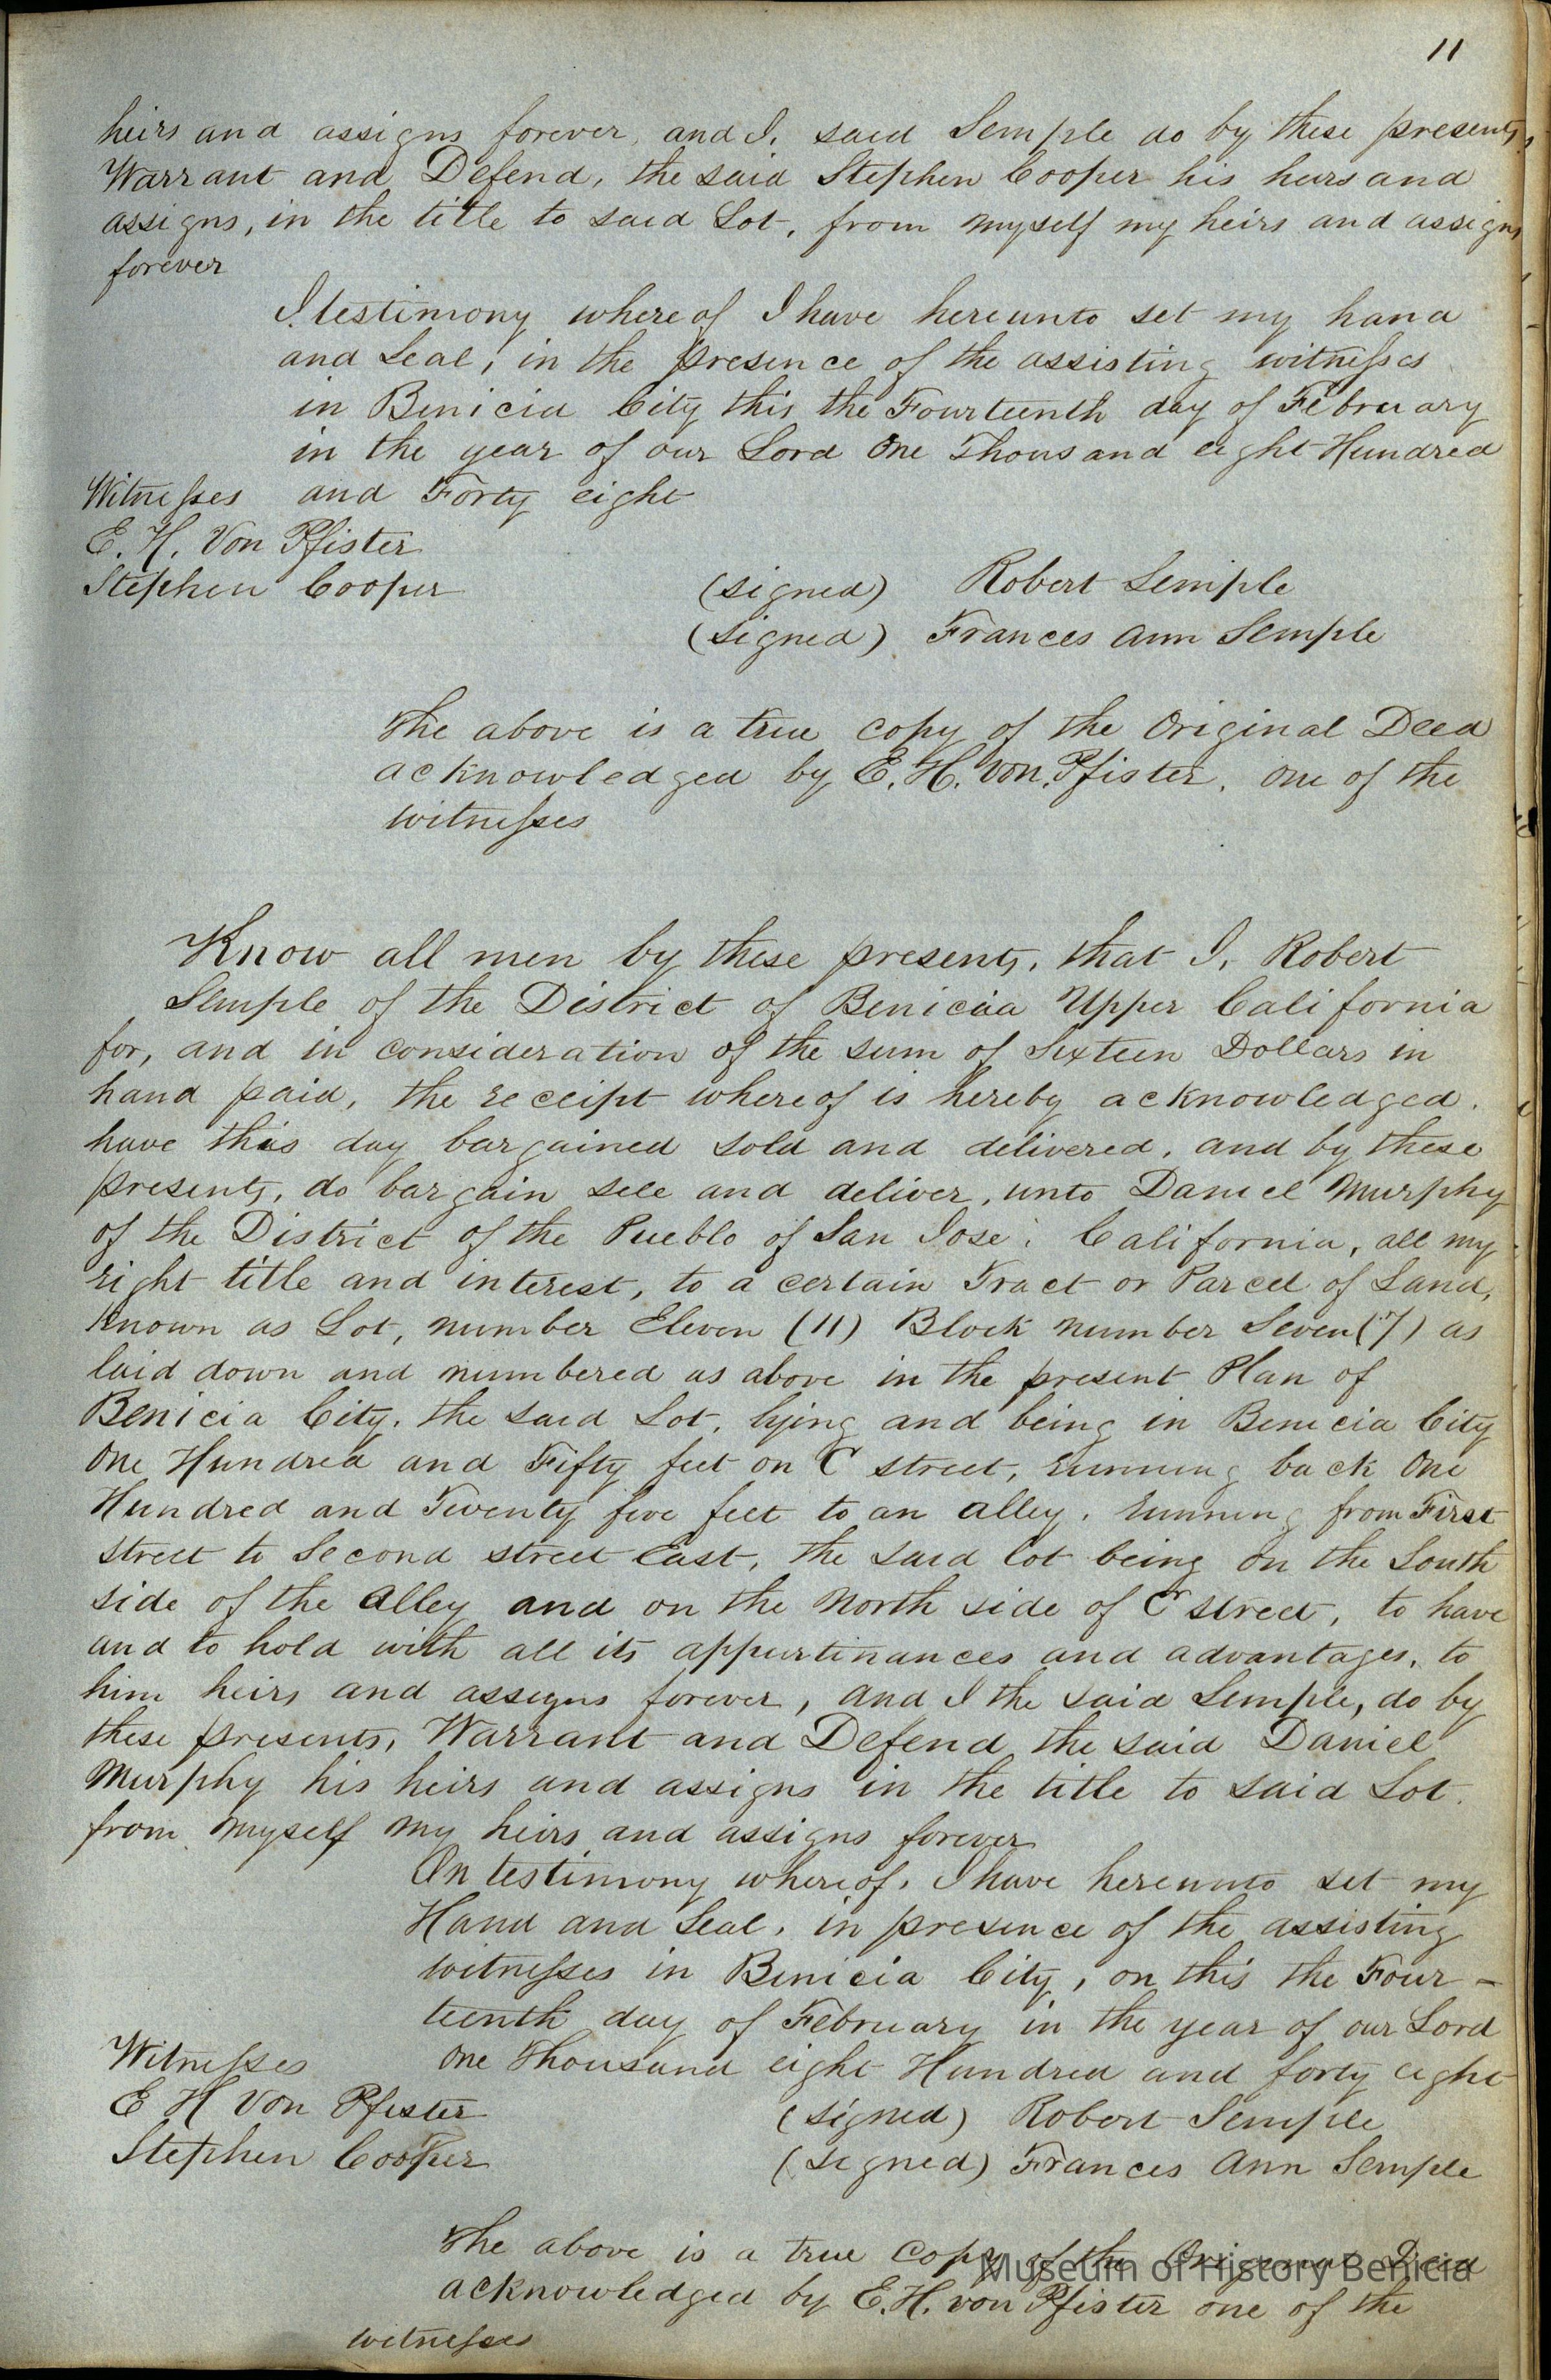 11
heirs and assigns forever, and I, said Semple do by these presents,
Warrant and Defend, the said Stephen Cooper his heirs and
assigns, in the title to said Lot, from myself my heirs and assigns
forever
I testimony whereof I have hereunto set my hand
and Seal, in the presence of the assisting witnesses
in Benicia City this the Fourteenth day of February
in the year of our Lord One Thousand eight Hundred
Witnesses and Forty eight
E. H. Von Pfister
Stephen Cooper (signed) Robert Semple
(signed) Frances Ann Semple
The above is a true copy of the Original Deed
acknowledged by E. H. Von. Pfister, one of the
witnesses
Know all men by these presents, that I, Robert
Semple of the District of Beniciia Upper California
for, and in consideration of the sum of Sixteen Dollars in
hand paid, the receipt whereof is hereby acknowledged.
have this day bargained sold and delivered, and by these
presents, do bargain sell and deliver, unto Daniel Murphy
of the District of the Pueblo of San Jose, California, all my
right title and interest, to a certain Tract or Parcel of Land,
Known as Lot, number Eleven (11) Block number Seven (7) as
laid down and numbered as above in the present Plan of
Benicia City, the said Lot, lying and being in Benicia City
One Hundred and Fifty feet on C street, running back One
Hundred and Twenty five feet to an alley, running from First
street to Second street East, the said lot being on the South
side of the Alley and on the North side of C street, to have
and to hold with all its appurtinances and advantages, to
him heirs and assigns forever, and I the said Semple, do by
these presents, Warrant and Defend the said Daniel
Murphy his heirs and assigns in the title to said Lot.
from myself my heirs and assigns forever
In testimony whereof, I have hereunto set my
Hand and Seal, in presence of the assisting
witnesses in Benicia City, on this the Four-
teenth day of February in the year of our Lord
Witnesses One Thousand eight Hundred and forty eight
E H Von Pfister (signed) Robert Semple
Stephen Cooper (signed) Frances Ann Semple
The above is a true Copy of the Original Deed
Museum of History Benicia
acknowledged by E. H. von Pfister one of the
witnesses